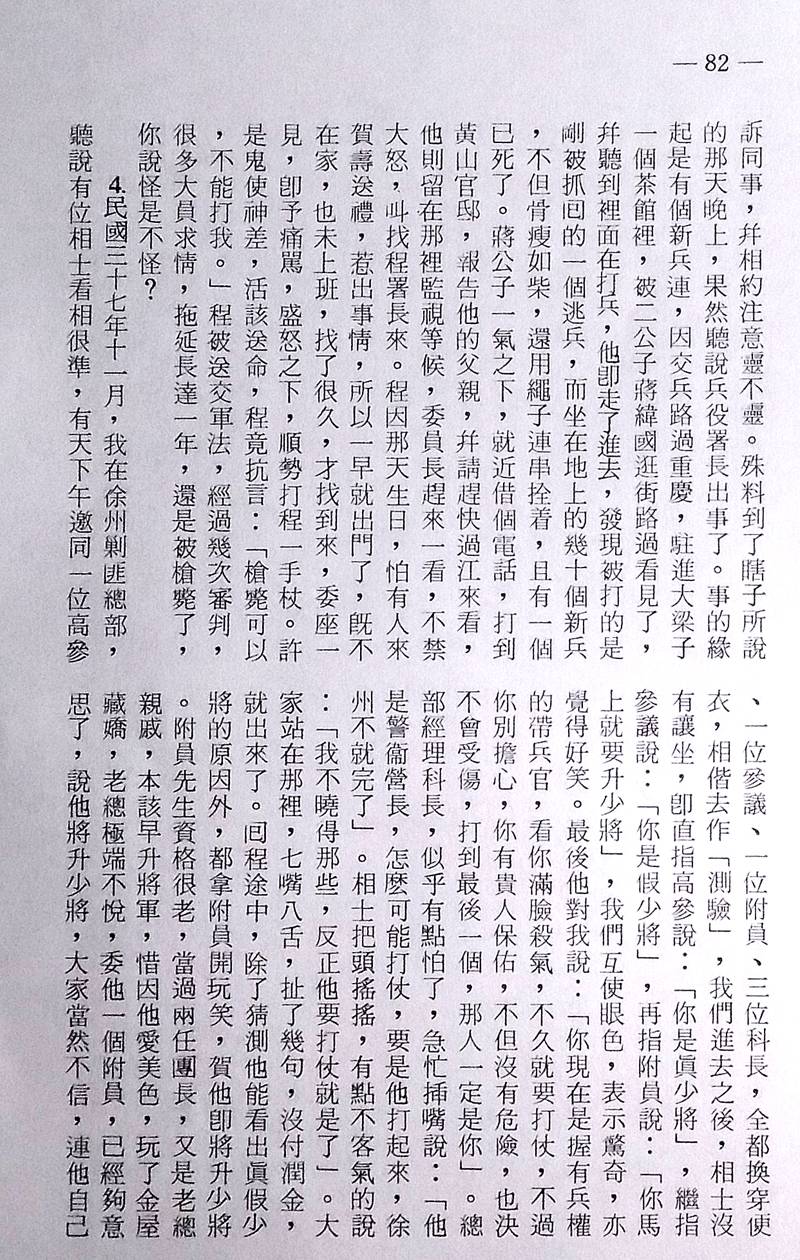 — 82 —
訴同事，幷相約注意靈不靈。殊料到了瞎子所說
的那天晚上，果然聽說兵役署長出事了。事的緣
起是有個新兵連，因交兵路過重慶，駐進大梁子
一個茶館裡，被二公子蔣緯國逛街路過看見了，
幷聽到裡面在打兵，他卽走了進去，發現被打的是
剛被抓囘的一個逃兵，而坐在地上的幾十個新兵
，不但骨瘦如柴，還用繩子連串拴着，且有一個
已死了。蔣公子一氣之下，就近借個電話，打到
黃山官邸，報告他的父親，幷請趕快過江來看，
他則留在那裡監視等候，委員長趕來一看，不禁
大怒，叫找程署長來。程因那天生日，怕有人來
賀壽送禮，惹出事情，所以一早就出門了，旣不
在家，也未上班，找了很久，才找到來，委座一
見，卽予痛駡，盛怒之下，順勢打程一手杖。許
是鬼使神差，活該送命，程竟抗言：「槍斃可以
，不能打我。」程被送交軍法，經過幾次審判，
很多大員求情，拖延長達一年，還是被槍斃了，
你說怪是不怪？
4.民國三十七年十一月，我在徐州剿匪總部，
聽說有位相士看相很準，有天下午邀同一位高參
、一位參議、一位附員、三位科長，全都換穿便
衣，相偕去作「測驗」，我們進去之後，相士沒
有讓坐，卽直指高參說：「你是眞少將」，繼指
參議說：「你是假少將」，再指附員說：「你馬
上就要升少將」，我們互使眼色，表示驚奇，亦
覺得好笑。最後他對我說：「你現在是握有兵權
的帶兵官，看你滿臉殺氣，不久就要打仗，不過
你別擔心，你有貴人保佑，不但沒有危險，也決
不會受傷，打到最後一個，那人一定是你」。總
部經理科長，似乎有點怕了，急忙揷嘴說：「他
是警衞營長，怎麽可能打仗，要是他打起來，徐
州不就完了」。相士把頭搖搖，有點不客氣的說
：「我不曉得那些，反正他要打仗就是了」。大
家站在那裡，七嘴八舌，扯了幾句，沒付潤金，
就出來了。囘程途中，除了猜測他能看出眞假少
將的原因外，都拿附員開玩笑，賀他卽將升少將
。附員先生資格很老，當過兩任團長，又是老總
親戚，本該早升將軍，惜因他愛美色，玩了金屋
藏嬌，老總極端不悅，委他一個附員，已經夠意
思了，說他將升少將，大家當然不信，連他自己